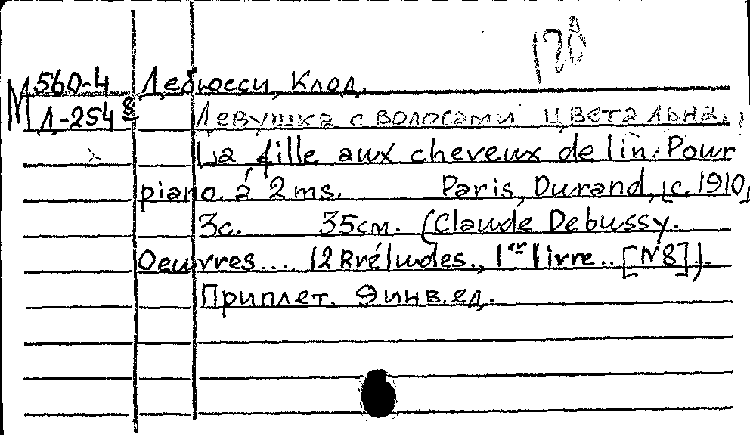 120
М 560-4 Дебюсси, Клод.
Д-254 8 Девушка с волосами цвета льна.
La fille aux cheveux de lin. Pour
piano à 2 ms. Paris, Durand, [c. 1910,
3с. 35см. (Claude Debussy.
Oeuvres... 12 Préludes., 1er livre.. [N8]).
Приплет. 9 инв. ед.